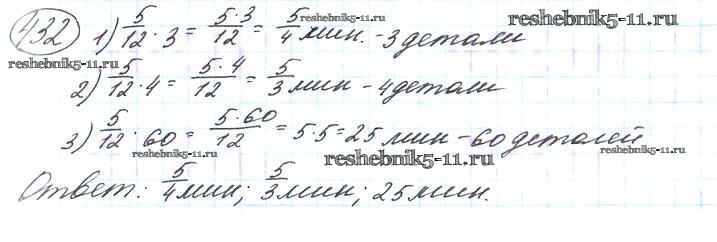 432 1) 5/12 · 3 = 5·3/12 = 5/4 мин. - 3 детали
reshebnik5-11.ru
reshebnik5-11.ru
reshebnik5-11.ru
2) 5/12 · 4 = 5·4/12 = 5/3 мин - 4 детали
3) 5/12 · 60 = 5·60/12 = 5·5 = 25 мин - 60 деталей
reshebnik5-11.ru
reshebnik5-11.ru
reshebnik5-11.ru
Ответ: 5/4 мин; 5/3 мин; 25 мин.
reshebnik5-11.ru